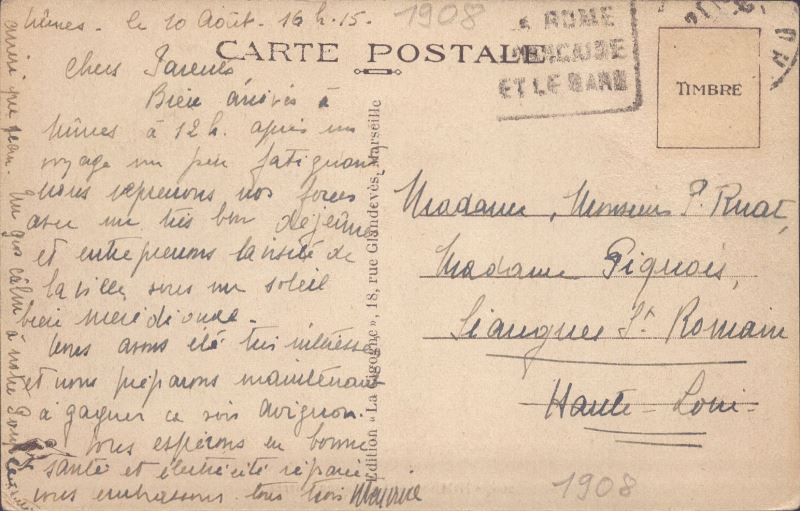 Nîmes - le 10 Août - 16 h. 15 -
1908
CARTE POSTALE
ROME
ET LE GARD
TIMBRE
Chers Parents
Bien arrivés à
Nîmes à 12 h. après un
voyage un peu fatigant
nous reprenons nos forces
avec un très bon déjeuné
et entreprenons la visite de
la ville sous un soleil
bien
Nous avons été très intéressés
et nous préparons maintenant
à gagner ce soir Avignon.
Nous espérons en bonne
santé et électricité réparée
vous embrassons tous trois Maurice
ainsi que Jean. Un gros câlin à notre
Edition "La Cigogne", 18, rue Glandevès, Marseille
Madame, Monsieur P. Ruat,
Madame Pignois,
Siaugues St Romain
Haute-Loire
1908